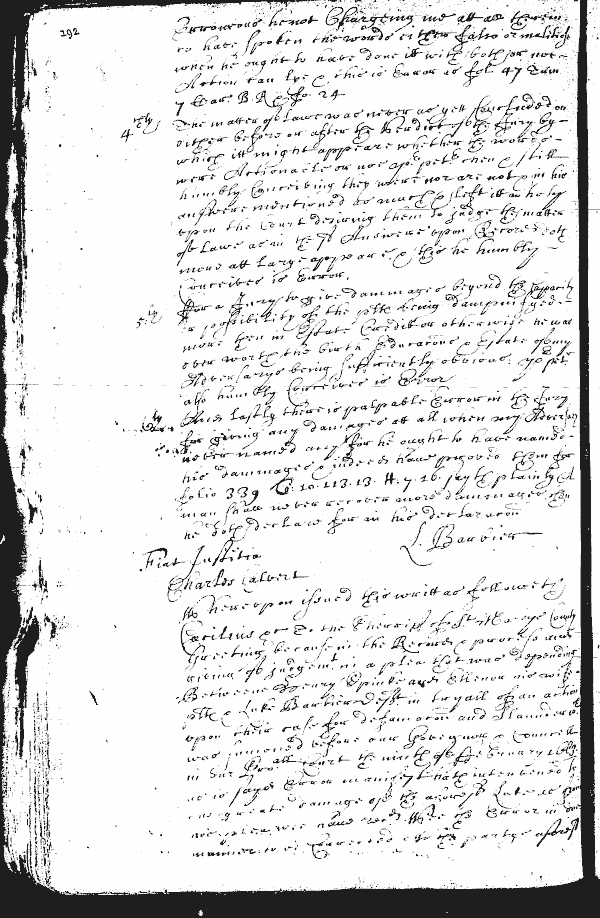 292
Erroneous he not Chargeing me att all therein
to have spoken the words either falso or malitiose
when he ought to have done itt with both or noe
Action can lye & this is Error as fol. 47
7 Eare. B. R. fo. 24
4thly The matter of Lawe was never as yett Concluded on
either before or after the Verdict of the Jury by
which itt might appeare whether the words
were Actionable or noe yor petr then & still
humbly Conceiving they were nor are not & in his
answere mentioned as much & left itt wholy
upon the Court desiring them to judge the matter
of Lawe as in the sd Answere upon Record doth
more att large appeare & this he humbly
Conceives is Error.
5thly For a Jury to give dammages beyond the Capacity
or possibility of the pltts being dampnifyed
more then in Estate Credit or otherwise he was
ever worth the birth Educacon & Estate of my
Adversarys being sufficiently obvious. yor petr
also humbly Conceives is Error
And lastly there is palpable Error in the Jury
for giving any damages att all when my Adversary
never named any for he ought to have named
his dammages & indeed have proved them for
folio 339 10. 113. 13. H. 7. 16. sayth plainly A
man shall never recover more dammages then
he doth declare for in his declaracon
L. Barbier
Fiat Justitia
Charles Calvert
Whereupon issued this writt as followeth
Cecilius &c To the Sherriff of St Maryes County
Greeting because in the Record & process and
giving of judgemt in a plea that was depending
Betweene Henry Spinke and Ellenor his wife
pltts & Luke Barbier Deft in tryall of an action
upon their case for defamacon and slander
was sumoned before our Governor & Councell
in our Provll Court the ninth of February
as is sayd Error manifest hath intervened to
the greate damage of the aforesd Luke as
wee are willing the Error in
manner to be Corrected & to the partys aforesd